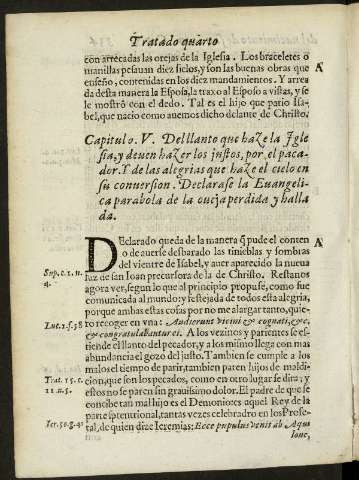 Tratado quarto
con arrecadas las orejas de la Iglesia. Los braceletes o
manillas pesauan diez siclos, y son las buenas obras que
enseño, contenidas en los diez mandamientos. Y arrea
da desta manera la Esposa, la traxo al Esposo a vistas, y se
le mostrò con el dedo. Tal es el hijo que pario Isa-
bel, que nacio como auemos dicho delante de Christo.
Capitulo. V. Del llanto que haze la Igle
sia, y deuen hazer los justos, por el peca-
dor. Y de las alegrias que haze el cielo en
su conuersion. Declarase la Euangeli-
ca parabola de la oueja perdida y halla
da.
DEclarado queda de la manera q̃ pude el conten
to de auerse desbarado las tinieblas y sombras
del vientre de Isabel, y auer aparecido la nueua
Sup. c. 1. n.
luz de san Ioan precursora de la de Christo. Restanos
4.
agora ver, segun lo que al principio propuse, como fue
comunicada al mundo y festejada de todos esta alegria,
porque ambas estas cosas por no me alargar tanto, quie-
Luc. 1. f. 58
ro recoger en vna: Audierunt vicini & cognati, &c.
& congratulabantur ei. A los vezinos y parientes se es-
tiende el llanto del pecador, y a los mismo llega con mas
abundancia el gozo del justo. Tambien se cumple a los
malos el tiempo de parir, tambien paren hijos de maldi-
Trat. 15. c.
cion, que son los pecados, como en otro lugar se dira; y
11. n. 5.
estos no se paren sin grauissimo dolor. El padre de que se
concibe tan mal hijo es el Demonio: es aquel Rey de la
parte septentrional, tantas vezes celebrado en los Profe-
Ier. 50. g. 41
tas, de quien dize Ieremias: Ecce populus venit ab Aqui
lone,